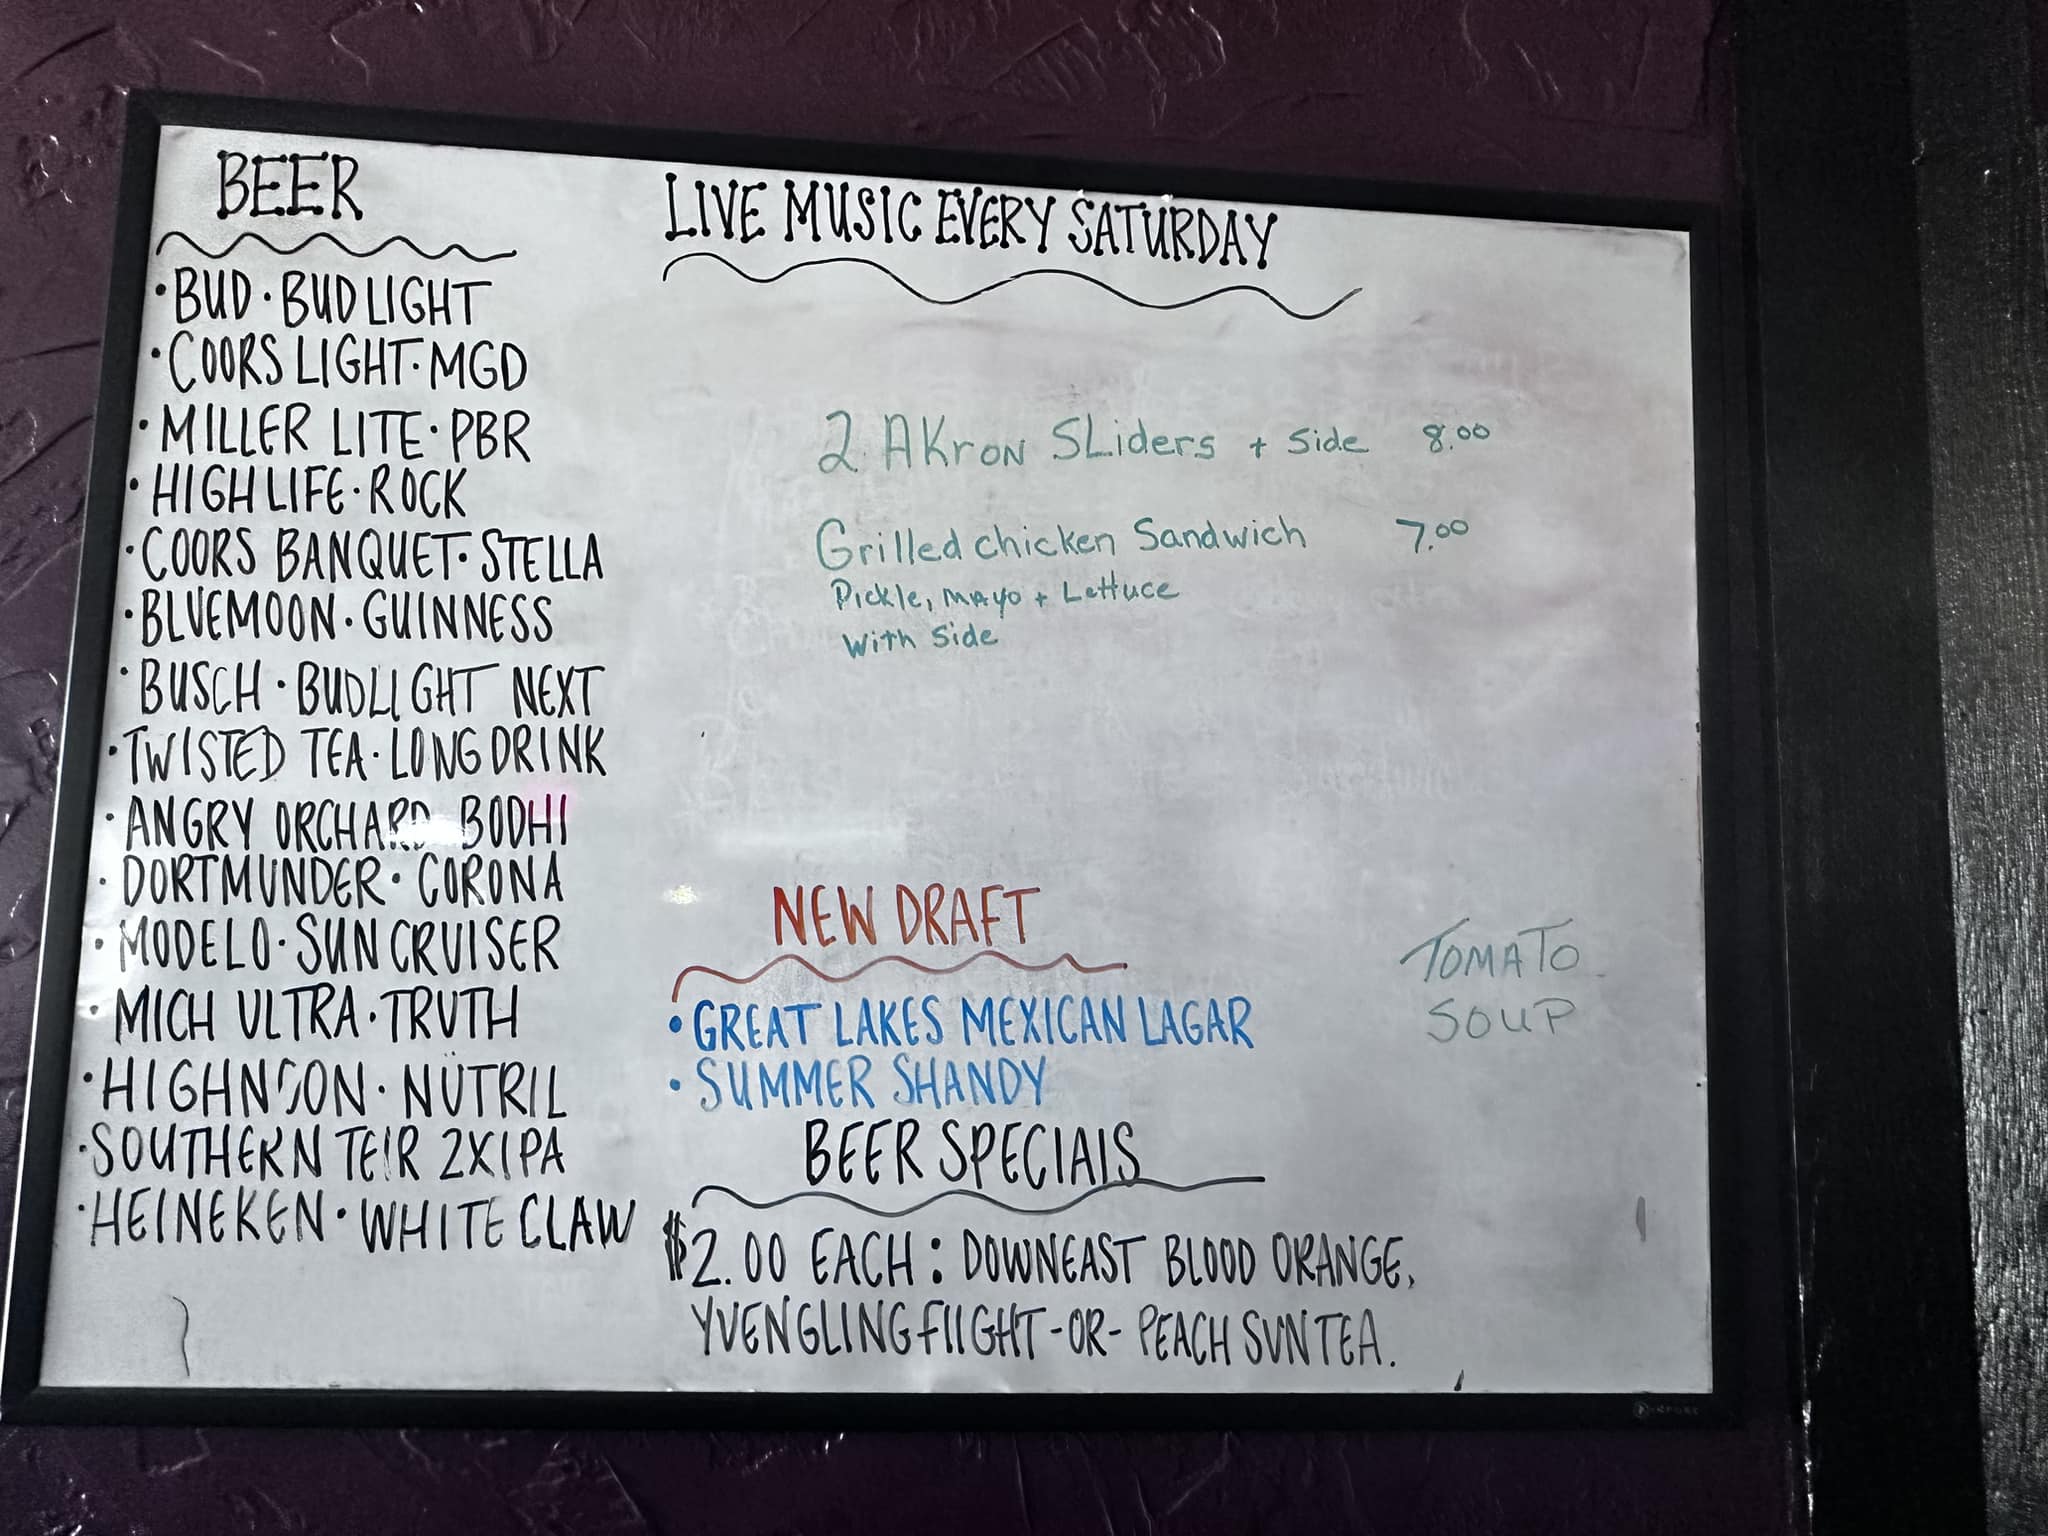 BEER
• BUD • BUDLIGHT
• COORS LIGHT • MGD
• MILLER LITE • PBR
• HIGH LIFE • ROCK
• COORS BANQUET • STELLA
• BLUEMOON • GUINNESS
• BUSCH • BUDLIGHT NEXT
• TWISTED TEA • LONG DRINK
• ANGRY ORCHARD BODHI
• DORTMUNDER • CORONA
• MODELO • SUN CRUISER
• MICH ULTRA • TRUTH
• HIGHNOON • NÜTRIL
• SOUTHERN TEIR 2XIPA
• HEINEKEN • WHITE CLAW
LIVE MUSIC EVERY SATURDAY
2 AKRON SLiders + Side 8.00
Grilled chicken Sandwich 7.00
Pickle, MAYO + Lettuce
With Side
NEW DRAFT
• GREAT LAKES MEXICAN LAGAR
• SUMMER SHANDY
TOMATO
SOUP
BEER SPECIALS
$2.00 EACH: DOWNEAST BLOOD ORANGE,
YUENGLING FLIGHT -OR- PEACH SUN TEA.